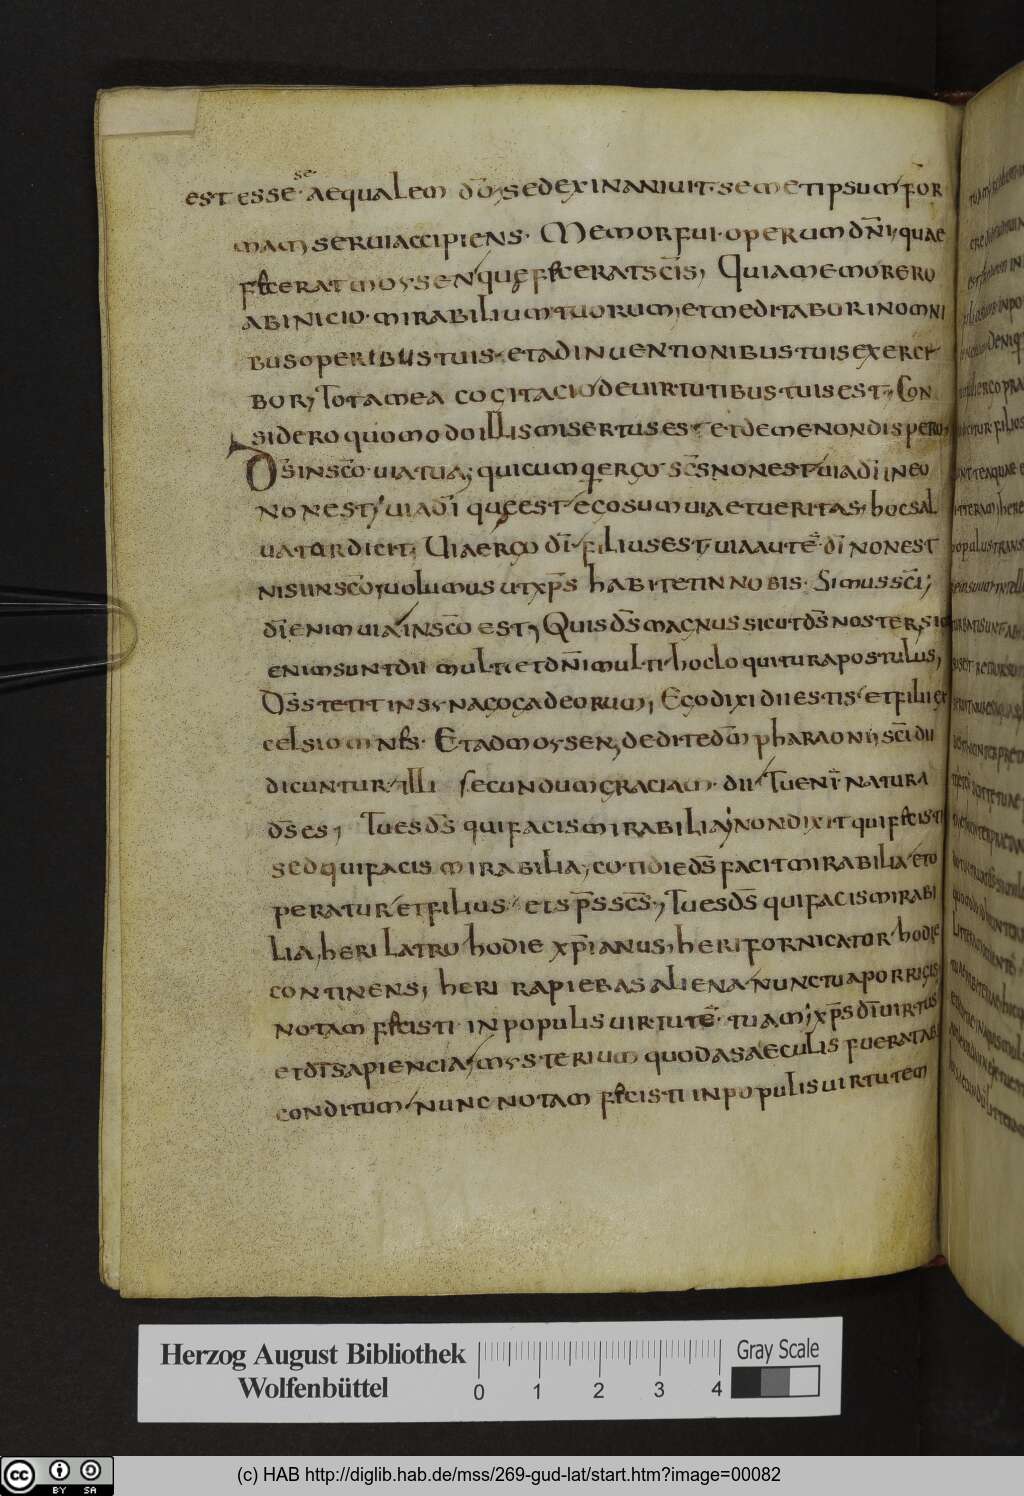 est esse se aequalem dm̄, sed exinaniuit semetipsum for
mam serui accipiens. Memor fui operum dn̄i, quae
fecerat moysen quę fecerat sc̄is, Quia memor ero
ab inicio mirabilium tuorum, et meditabor in omni
bus operibus tuis et ad inuentionibus tuis exerce
bor, Tota mea cogitacio de uirtutibus tuis est, Con
sidero quomodo illis misertus es et de me non disperu,
Ds̄ in sc̄o uia tua, quicumq ergo sc̄s non est uia dī in eo
non est, uia dī quę est ego sum uia et ueritas, hoc sal
uator dicit, Uia ergo dī filius est, uia autē dī non est
nisi in sc̄o, uolumus ut xp̄s habitet in nobis. Simus sc̄i,
dī enim uia in sc̄o est, Quis ds̄ magnus sicut ds̄ noster, si
enim sunt dii multi et dn̄i multi hoc loquitur apostulus,
Ds̄ stetit in synagoga deorum, Ego dixi dii estis et filii ex
celsi omnes. Et ad moysen, dedi te dm̄ pharaoni, sc̄i dii
dicuntur illi secundum graciam dii Tu enī natura
ds̄ es, Tu es ds̄ qui facis mirabilia, non dixit qui fecisti
sed qui facis mirabilia, cotidie ds̄ facit mirabilia et o
peratur et filius et sp̄s sc̄s, Tu es ds̄ qui facis mirabi
lia, heri latro hodie xp̄ianus, heri fornicator hodie
continens, heri rapiebas aliena nunc tua porrigis
notam fecisti in populis uirtutē tuam, xp̄s dī uirtus
et dī sapiencia, mysterium quod a saeculis fuerat ab
conditum, nunc notam fecisti in populis uirtutem
Herzog August Bibliothek
Wolfenbüttel
0 1 2 3 4
Gray Scale
cc BY SA
(c) HAB http://diglib.hab.de/mss/269-gud-lat/start.htm?image=00082